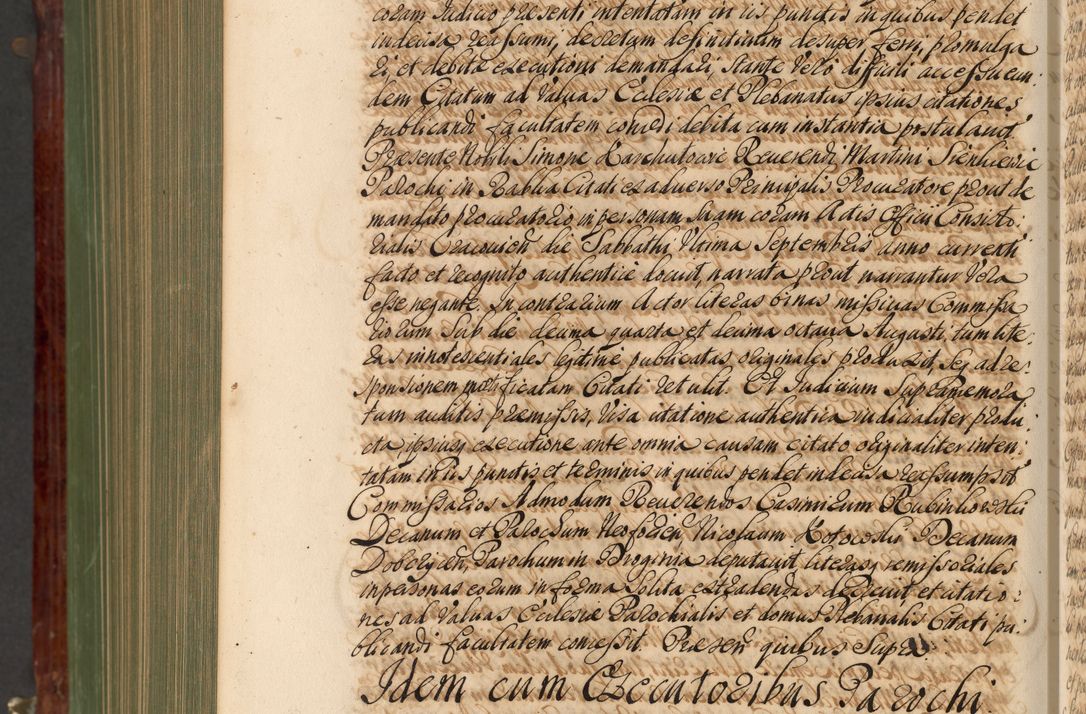 coram Judicio præsenti intentatam in iis punctis in quibus pendet
indecisa reassumi, decretum definitivum desuper ferri, promulga
ri, et debitæ executioni demandari, stante vero difficili accessu eun:
dem Citatum ad Valvas Ecclesiæ et Plebanatus ipsius citationes
publicandi facultatem concedi debita cum instantia postulavit.
Præsente Nobli Simone Karchutowic Reverendi Martini Sienkiewic
Parochi in Rabka Citati ex adverso Principalis Procuratore prout de
mandato procuratorio in personam suam coram Actis Officii Consisto:
rialis Cracovien die Sabbathi Ultima Septembris anno currenti
facto et recognito authentice docuit, narrata prout narrantur Vera
esse negante. In contrarium Actor literas binas missivas Commissa
riorum Sub die decima quarta et decima octava Augusti, tum lite:
ras innotescentiales legitime publicatas originales produxit, seq ad re:
sponsionem notificatam Citati retulit. Et Judicium Supramemora
tum auditis præmissis, visa citatione authentica judicialiter produ
cta, ipsiusq executione ante omnia causam citato originaliter inten:
tatam in iis punctis et terminis in quibus pendet indecisa reassumpsit
Commissarios Admodum Reverendos Casimirum Rubinkowski
Decanum et Parochum Neoforien, Nicolaum Kotocoski Decanum
Dobczycen, Parochum in Droginia deputavit literasq remissoriales
in personas eorum in forma solita extradendas decrevit, et citatio:
nes ad Valvas Ecclesiæ Parochialis et domus Plebanalis Citati pu:
blicandi facultatem concessit. Præsen quibus Supra.
Idem cum Executoribus Parochi